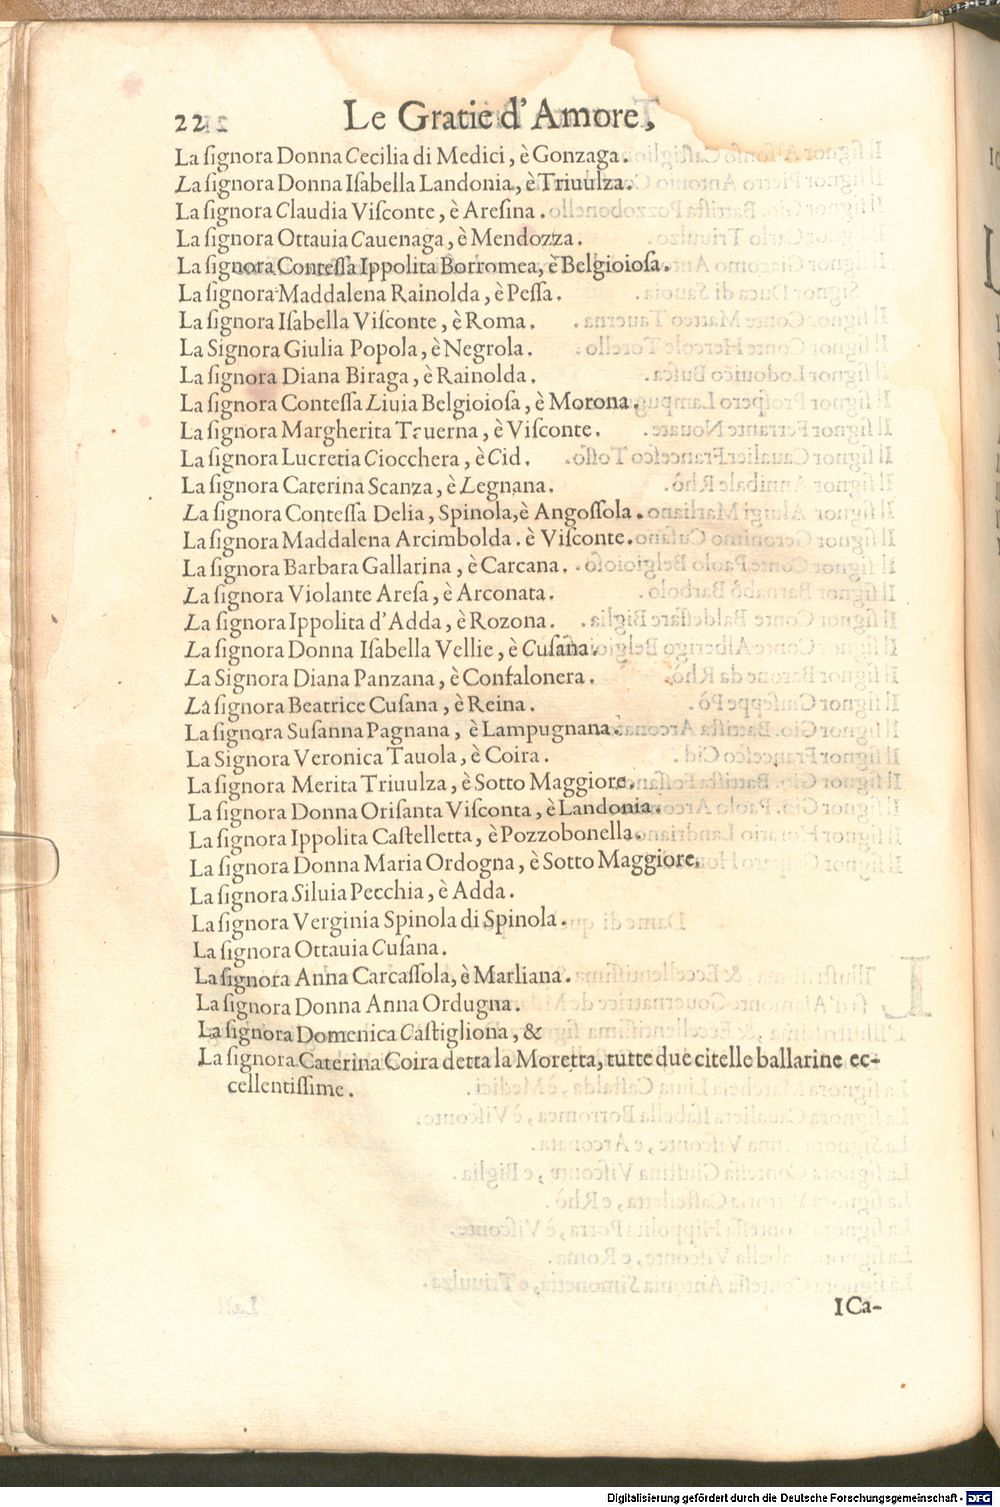 22 Le Gratie d'Amore,
La ſignora Donna Cecilia di Medici, è Gonzaga.
La ſignora Donna Iſabella Landonia, è Triuulza.
La ſignora Claudia Viſconte, è Areſina.
La ſignora Ottauia Cauenaga, è Mendozza.
La ſignora Conteſſa Ippolita Borromea, è Belgioioſa.
La ſignora Maddalena Rainolda, è Peſſa.
La ſignora Iſabella Viſconte, è Roma.
La Signora Giulia Popola, è Negrola.
La ſignora Diana Biraga, è Rainolda.
La ſignora Conteſſa Liuia Belgioioſa, è Morona.
La ſignora Margherita Tauerna, è Viſconte.
La ſignora Lucretia Ciocchera, è Cid.
La ſignora Caterina Scanza, è Legnana.
La ſignora Conteſſa Delia, Spinola, è Angoſſola.
La ſignora Maddalena Arcimbolda. è Viſconte.
La ſignora Barbara Gallarina, è Carcana.
La ſignora Violante Areſa, è Arconata.
La ſignora Ippolita d'Adda, è Rozona.
La ſignora Donna Iſabella Vellie, è Cuſana.
La Signora Diana Panzana, è Confalonera.
La ſignora Beatrice Cuſana, è Reina.
La ſignora Suſanna Pagnana, è Lampugnana.
La Signora Veronica Tauola, è Coira.
La ſignora Merita Triuulza, è Sotto Maggiore.
La ſignora Donna Oriſanta Viſconta, è Landonia.
La ſignora Ippolita Caſtelletta, è Pozzobonella.
La ſignora Donna Maria Ordogna, è Sotto Maggiore.
La ſignora Siluia Pecchia, è Adda.
La ſignora Verginia Spinola di Spinola.
La ſignora Ottauia Cuſana.
La ſignora Anna Carcaſſola, è Marliana.
La ſignora Donna Anna Ordugna.
La ſignora Domenica Caſtigliona, &
La ſignora Caterina Coira detta la Moretta, tutte due citelle ballarine ec-
cellentiſſime.
I Ca-
Digitalisierung gefördert durch die Deutsche Forschungsgemeinschaft - DFG